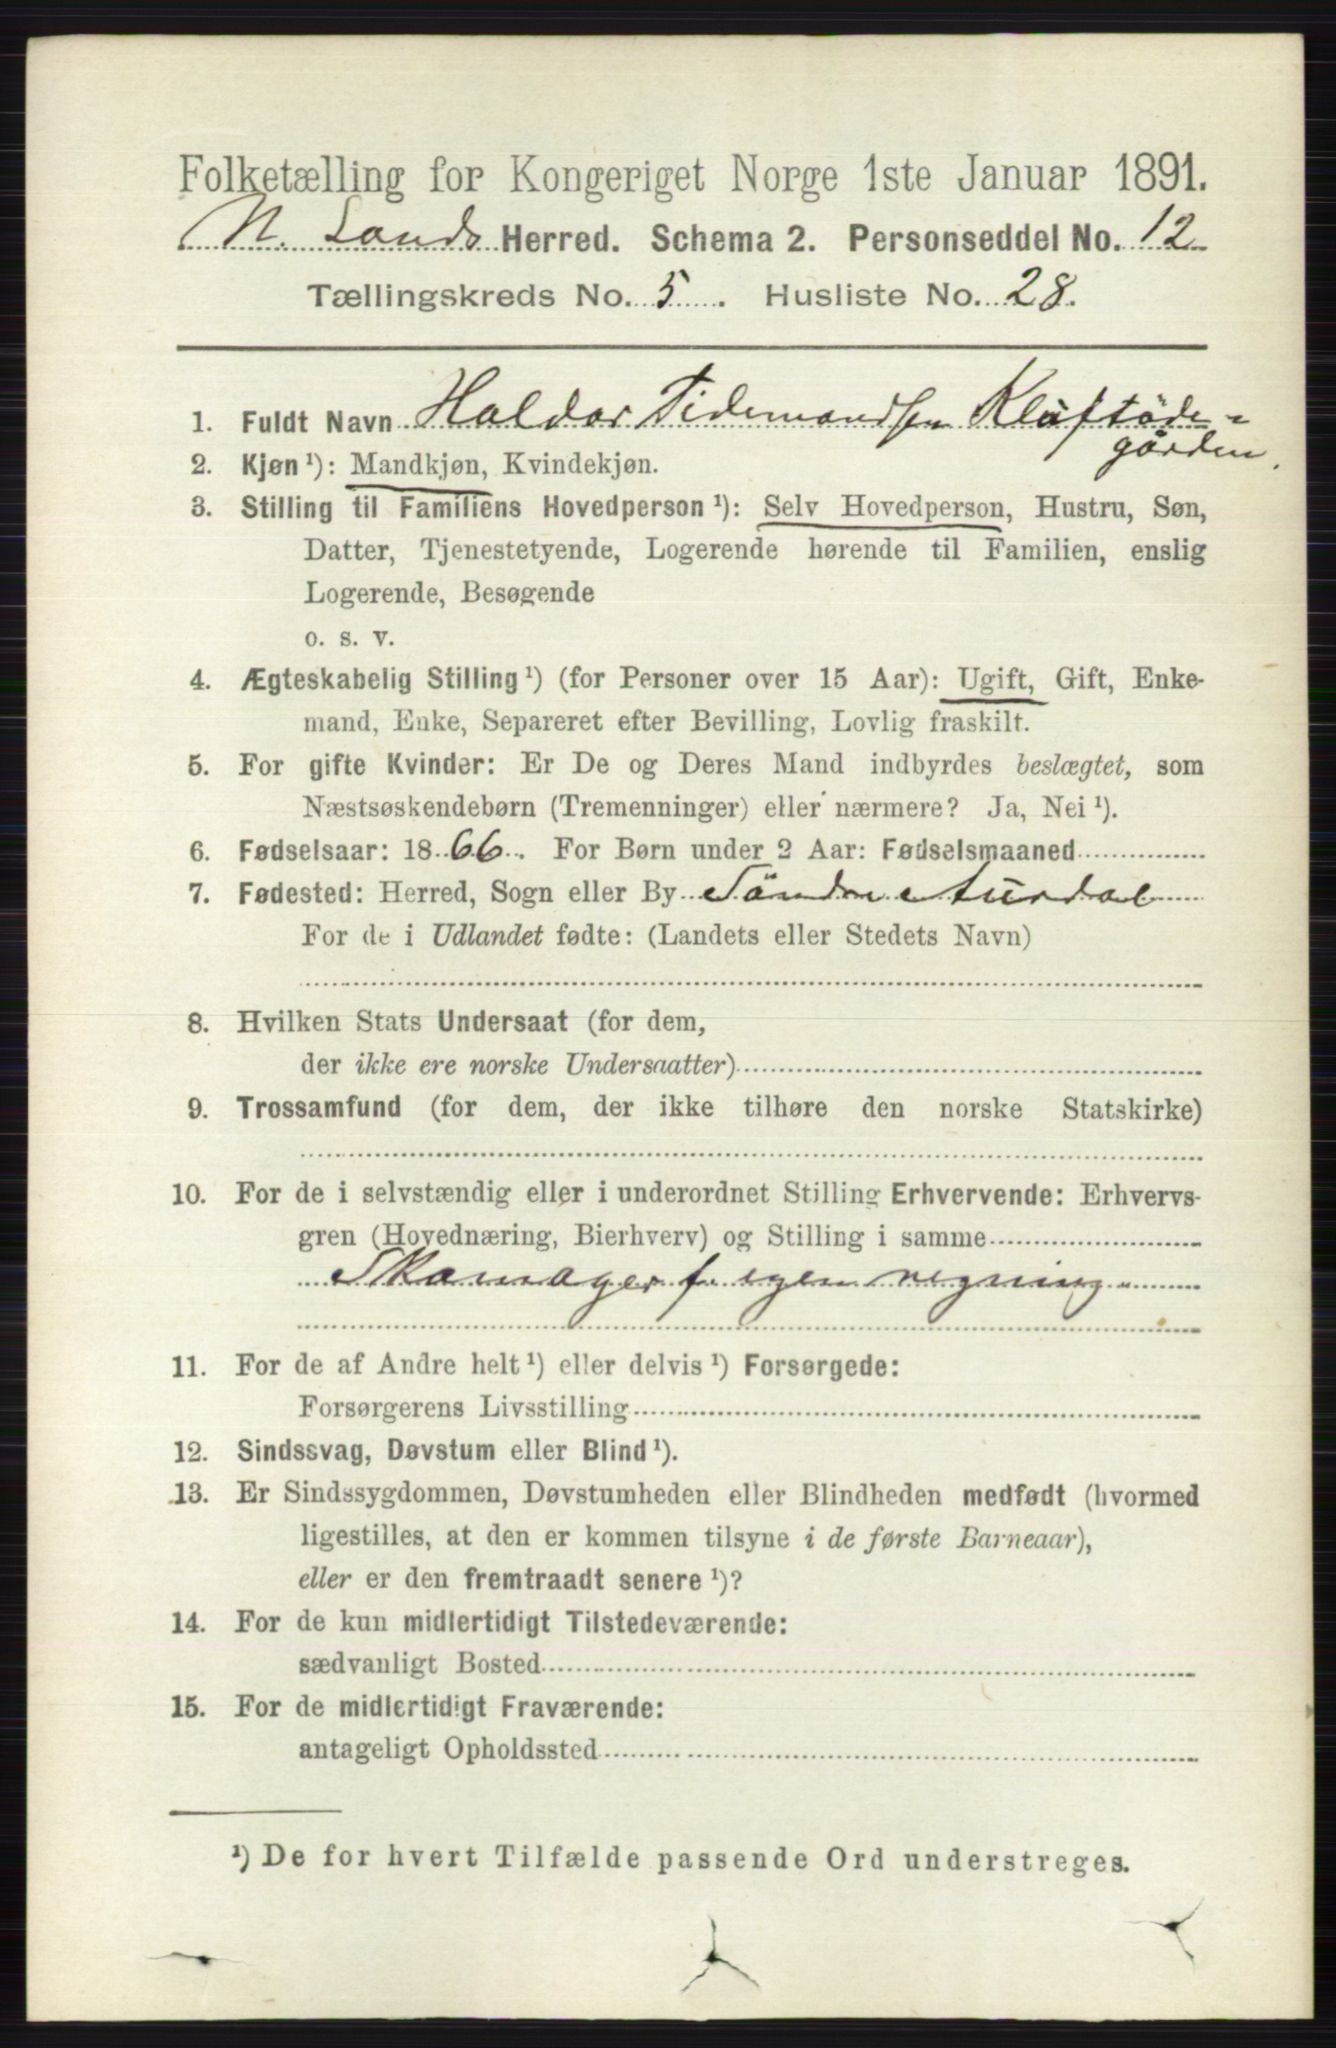 Folketælling for Kongeriget Norge 1ste Januar 1891.
N. Lands Herred. Schema 2. Personseddel No. 12
Tællingskreds No. 5. Husliste No. 28.
1. Fuldt Navn Haldor Tidemandsen Kluftöde-
gården.
2. Kjøn ¹): Mandkjøn, Kvindekjøn.
3. Stilling til Familiens Hovedperson ¹): Selv Hovedperson, Hustru, Søn,
Datter, Tjenestetyende, Logerende hørende til Familien, enslig
Logerende, Besøgende
o. s. v.
4. Ægteskabelig Stilling ¹) (for Personer over 15 Aar): Ugift, Gift, Enke-
mand, Enke, Separeret efter Bevilling, Lovlig fraskilt.
5. For gifte Kvinder: Er De og Deres Mand indbyrdes beslægtet, som
Næstsøskendebørn (Tremenninger) eller nærmere? Ja, Nei ¹).
6. Fødselsaar: 1866. For Børn under 2 Aar: Fødselsmaaned
7. Fødested: Herred, Sogn eller By Söndre Aurdal
For de i Udlandet fødte: (Landets eller Stedets Navn)
8. Hvilken Stats Undersaat (for dem,
der ikke ere norske Undersaatter)
9. Trossamfund (for dem, der ikke tilhøre den norske Statskirke)
10. For de i selvstændig eller i underordnet Stilling Erhvervende: Erhvervs-
gren (Hovednæring, Bierhverv) og Stilling i samme
Skomager f. egen regning
11. For de af Andre helt ¹) eller delvis ¹) Forsørgede:
Forsørgerens Livsstilling
12. Sindssvag, Døvstum eller Blind ¹).
13. Er Sindssygdommen, Døvstumheden eller Blindheden medfødt (hvormed
ligestilles, at den er kommen tilsyne i de første Barneaar),
eller er den fremtraadt senere ¹)?
14. For de kun midlertidigt Tilstedeværende:
sædvanligt Bosted
15. For de midlertidigt Fraværende:
antageligt Opholdssted
¹) De for hvert Tilfælde passende Ord understreges.